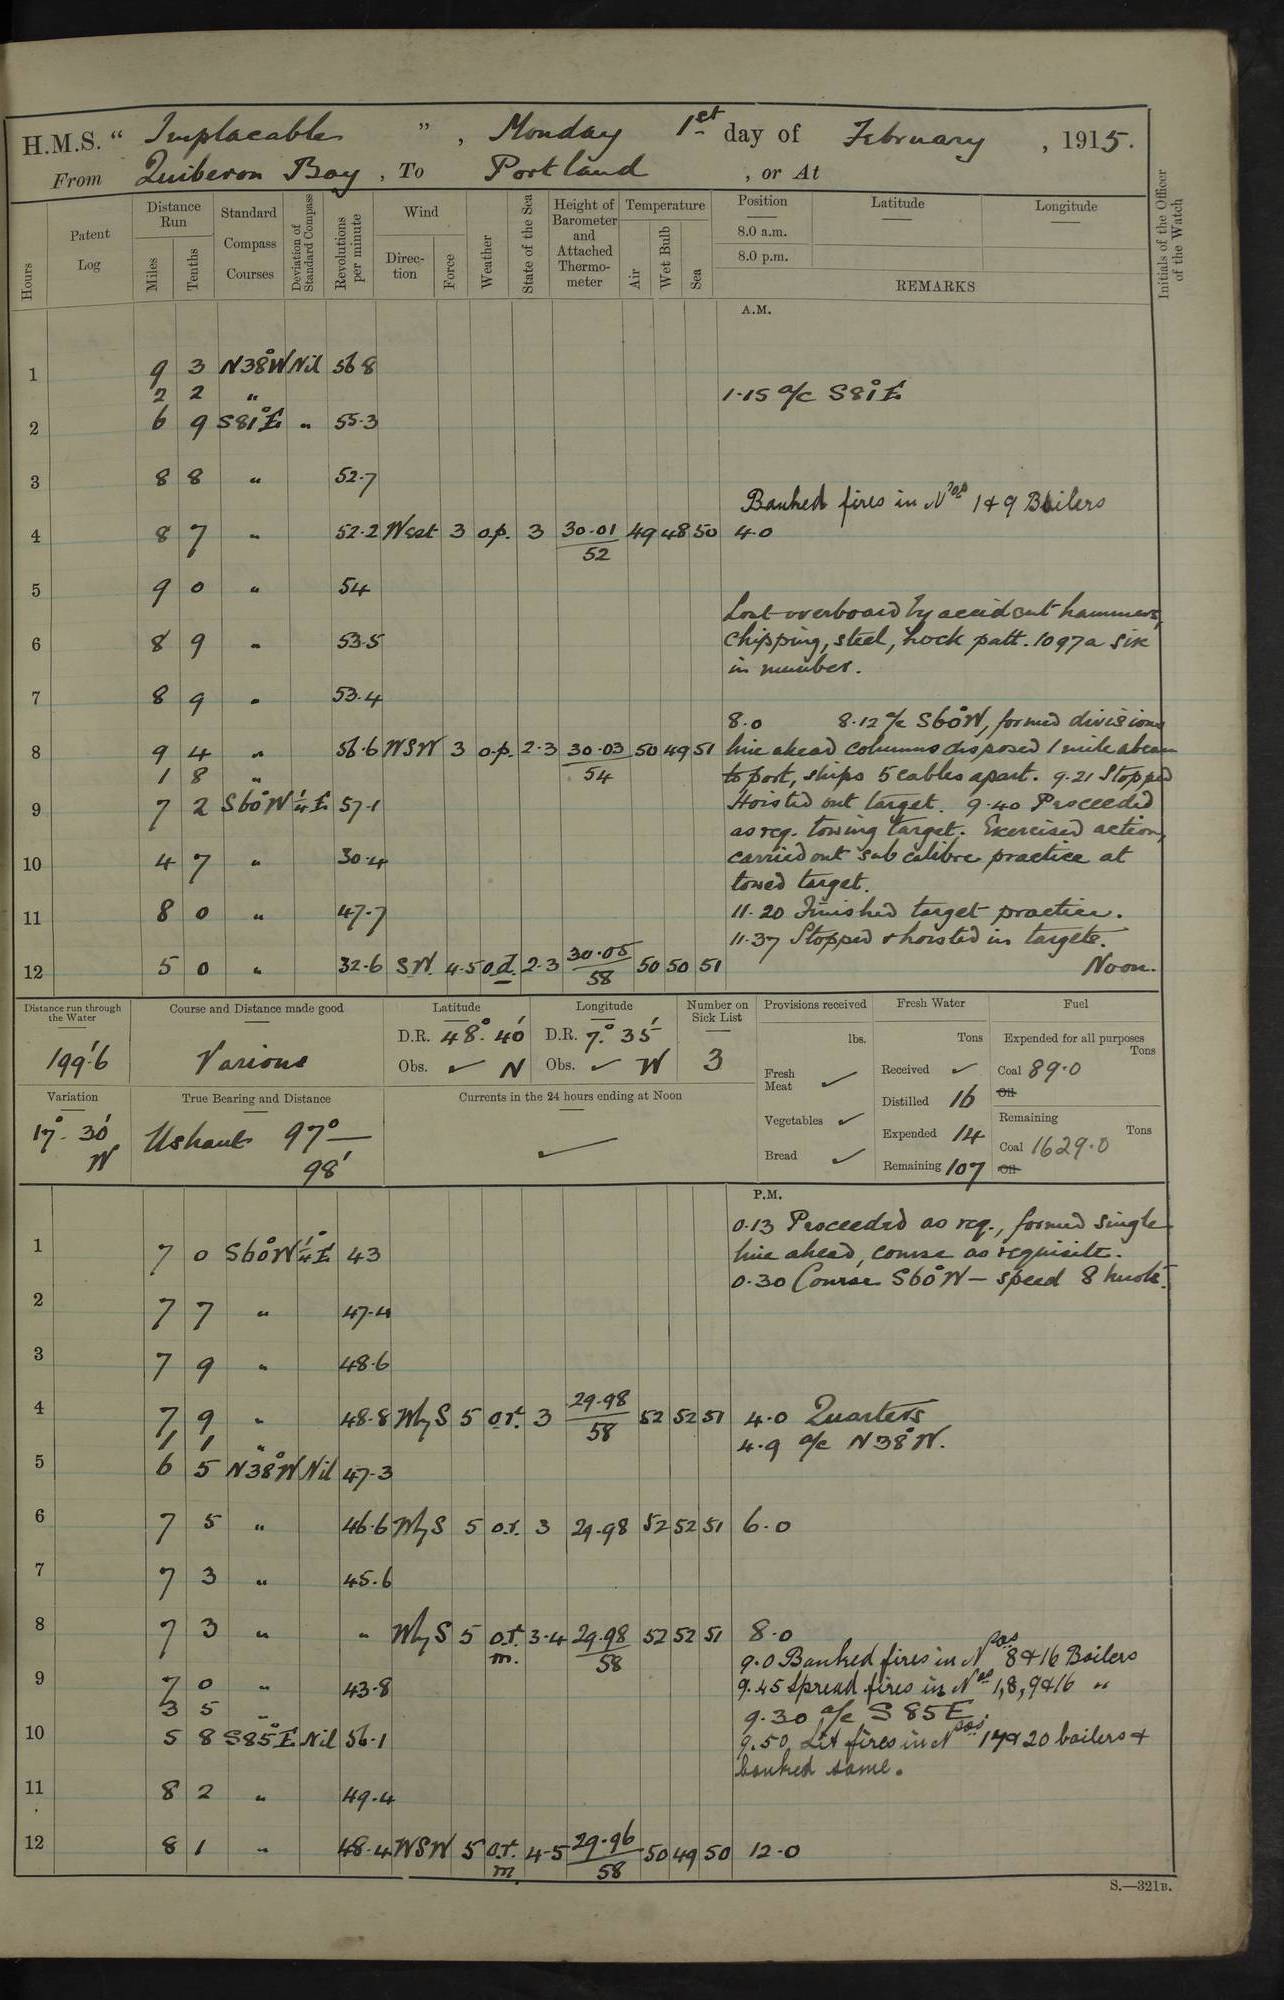 H.M.S. “ Implacable ” , Monday 1st day of February , 1915.
From Quiberon Bay , To Portland , or At
Hours
Patent Log
Distance Run
Miles
Tenths
Standard Compass Courses
Deviation of Standard Compass
Revolutions per minute
Wind
Direction
Force
Weather
State of the Sea
Height of Barometer and Attached Thermometer
Temperature
Air
Wet Bulb
Sea
Position Latitude Longitude
8.0 a.m.
8.0 p.m.
REMARKS
Initials of the Officer of the Watch
A.M.
1 9 3 N38°W Nil 56 8
2 2 "
1.15 a/c S81°E
2 6 9 S81°E " 55.3
3 8 8 " 52.7
Banked fires in Nos 1 & 9 Boilers
4 8 7 " 52.2 West 3 o.p. 3 30.01/52 49 48 50 4.0
5 9 0 " 54
Lost overboard by accident hammers,
6 8 9 " 53.5 chipping, steel, hock patt. 1097a six
in number.
7 8 9 " 53.4
8.0 8.12 a/c S60°W, formed divisions
8 9 4 " 56.6 WSW 3 o.p. 2.3 30.03/54 50 49 51 line ahead columns disposed 1 mile abeam
1 8 " to port, ships 5 cables apart. 9.21 Stopped
9 7 2 S60°W ¼E 57.1 Hoisted out target. 9.40 Proceeded
as req. towing target. Exercised action,
10 4 7 " 30.4 carried out sub calibre practice at
towed target.
11 8 0 " 47.7 11.20 Finished target practice.
11.37 Stopped & hoisted in targets.
12 5 0 " 32.6 SW 4.5 o.d. 2.3 30.05/58 50 50 51 Noon.
Distance run through the Water
199.6
Course and Distance made good
Various
Latitude
D.R. 48° 40'
Obs. ✓ N
Longitude
D.R. 7° 35'
Obs. ✓ W
Number on Sick List
3
Provisions received
lbs.
Fresh Meat ✓
Vegetables ✓
Bread ✓
Fresh Water
Tons
Received ✓
Distilled 16
Expended 14
Remaining 107
Fuel
Expended for all purposes
Tons
Coal 89.0
Oil
Remaining
Tons
Coal 1629.0
Oil
Variation
17° 30' W
True Bearing and Distance
Ushant 97° — 98'
Currents in the 24 hours ending at Noon
✓
P.M.
0.13 Proceeded as req., formed single
1 7 0 S60°W ¼°E 43 line ahead, course as requisite.
0.30 Course S60°W — speed 8 knots.
2 7 7 " 47.4
3 7 9 " 48.6
4 7 9 " 48.8 WbyS 5 o.r. 3 29.98/58 52 52 51 4.0 Quarters
1 1 " 4.9 a/c N38°W.
5 6 5 N38°W Nil 47.3
6 7 5 " 46.6 WbyS 5 o.r. 3 29.98 52 52 51 6.0
7 7 3 " 45.6
8 7 3 " " WbyS 5 o.r.m. 3.4 29.98/58 52 52 51 8.0
9.0 Banked fires in Nos 8 & 16 Boilers
9 7 0 " 43.8 9.45 Spread fires in Nos 1,8,9 & 16 "
3 5 " 9.30 a/c S 85 E.
10 5 8 S85°E Nil 56.1 9.50 Lit fires in Nos 17 & 20 boilers &
banked same.
11 8 2 " 49.4
12 8 1 " 48.4 WSW 5 o.r.m. 4.5 29.96/58 50 49 50 12.0
S.—321B.